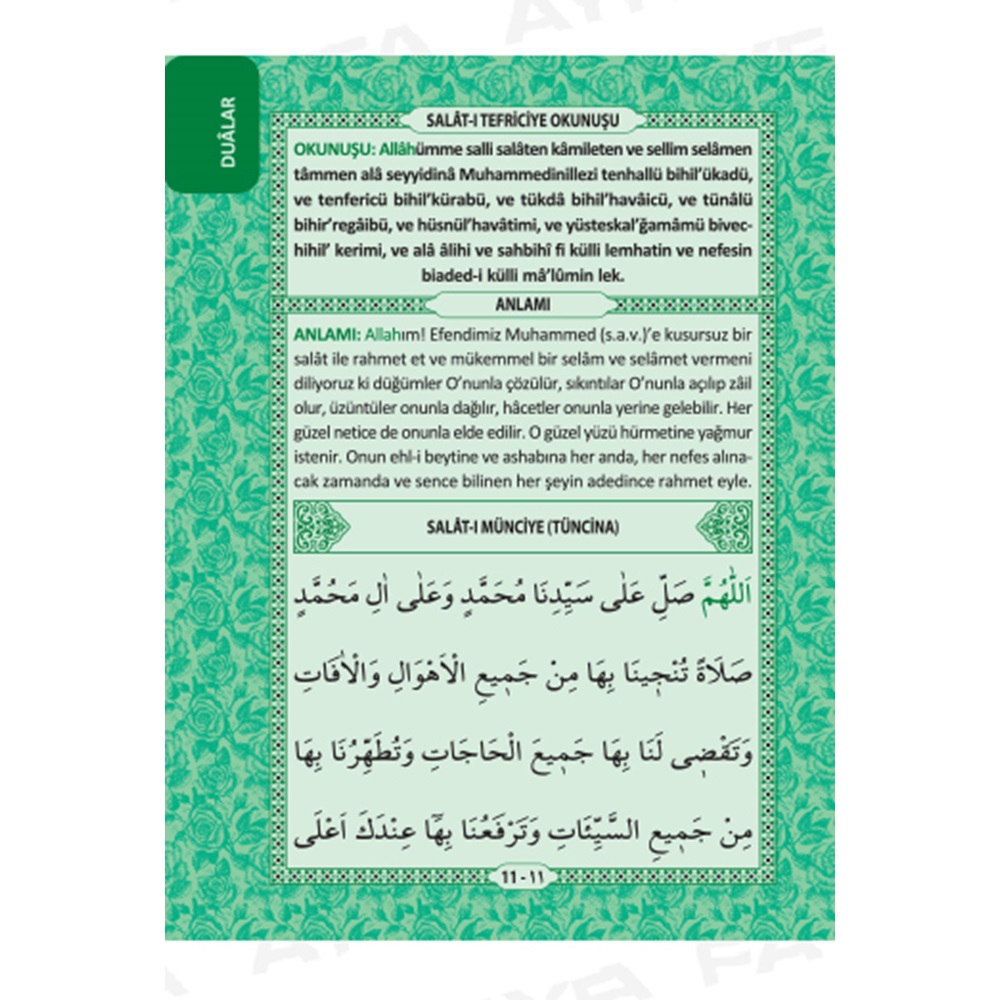 DUÂLAR
SALÂT-I TEFRİCİYE OKUNUŞU
OKUNUŞU: Allâhümme salli salâten kâmileten ve sellim selâmen
tâmmen alâ seyyidinâ Muhammedinillezi tenhallü bihil’ükadü,
ve tenfericü bihil’kürabü, ve tükdâ bihil’havâicü, ve tünâlü
bihir’regâibü, ve hüsnül’havâtimi, ve yüsteskal’ğamâmü bivec-
hihil’ kerimi, ve alâ âlihi ve sahbihî fi külli lemhatin ve nefesin
biaded-i külli mâ’lûmin lek.
ANLAMI
ANLAMI: Allahım! Efendimiz Muhammed (s.a.v.)’e kusursuz bir
salât ile rahmet et ve mükemmel bir selâm ve selâmet vermeni
diliyoruz ki düğümler O’nunla çözülür, sıkıntılar O’nunla açılıp zâil
olur, üzüntüler onunla dağılır, hâcetler onunla yerine gelebilir. Her
güzel netice de onunla elde edilir. O güzel yüzü hürmetine yağmur
istenir. Onun ehl-i beytine ve ashabına her anda, her nefes alına-
cak zamanda ve sence bilinen her şeyin adedince rahmet eyle.
SALÂT-I MÜNCİYE (TÜNCİNA)
اَللّٰهُمَّ صَلِّ عَلٰى سَيِّدِنَا مُحَمَّدٍ وَعَلٰى اٰلِ مَحُمَّدٍ
صَلَاةً تُنْجٖينَا بِهَا مِنْ جَمٖيعِ الْاَهْوَالِ وَالْاٰفَاتِ
وَتَقْضٖى لَنَا بِهَا جَمٖيعَ الْحَاجَاتِ وَتُطَهِّرُنَا بِهَا
مِنْ جَمٖيعِ السَّيِّئَاتِ وَتَرْفَعُنَا بِهَٓا عِنْدَكَ اَعْلَى
11 - ١١